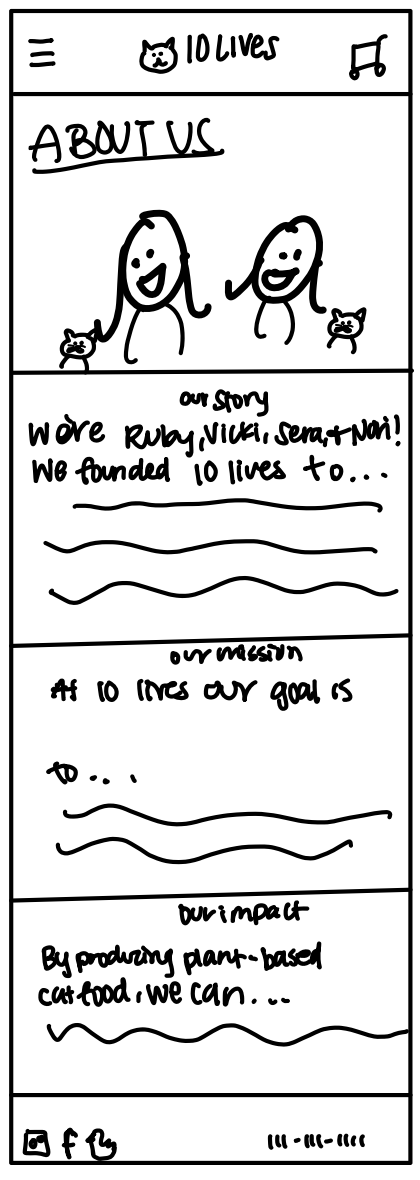 10 LIVES
ABOUT US
our story
We're Ruby, Vicki, Sera, + Nori!
We founded 10 lives to...
our mission
At 10 lives our goal is
to...
our impact
By producing plant-based
cat food, we can...
f